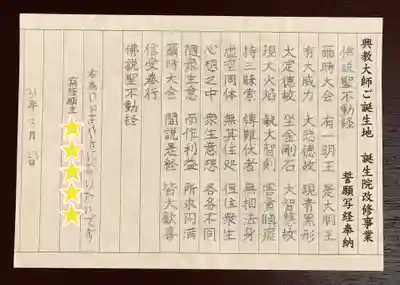 興教大師ご誕生地 誕生院改修事業
誓願写経奉納
仏説聖不動経
爾時大会 有一明王 是大明王
有大威力 大悲徳故 現青黒形
大定徳故 坐金剛石 大智慧故
現大火焔 執大智剣 害貪瞋癡
持三昧索 縛難伏者 無相法身
虚空同体 無其住処 但住衆生
心想之中 衆生意想 各各不同
随衆生意 而作利益 所求円満
爾時大会 聞説是経 皆大歓喜
信受奉行
仏説聖不動経
右為
写経願主
31年3月 日